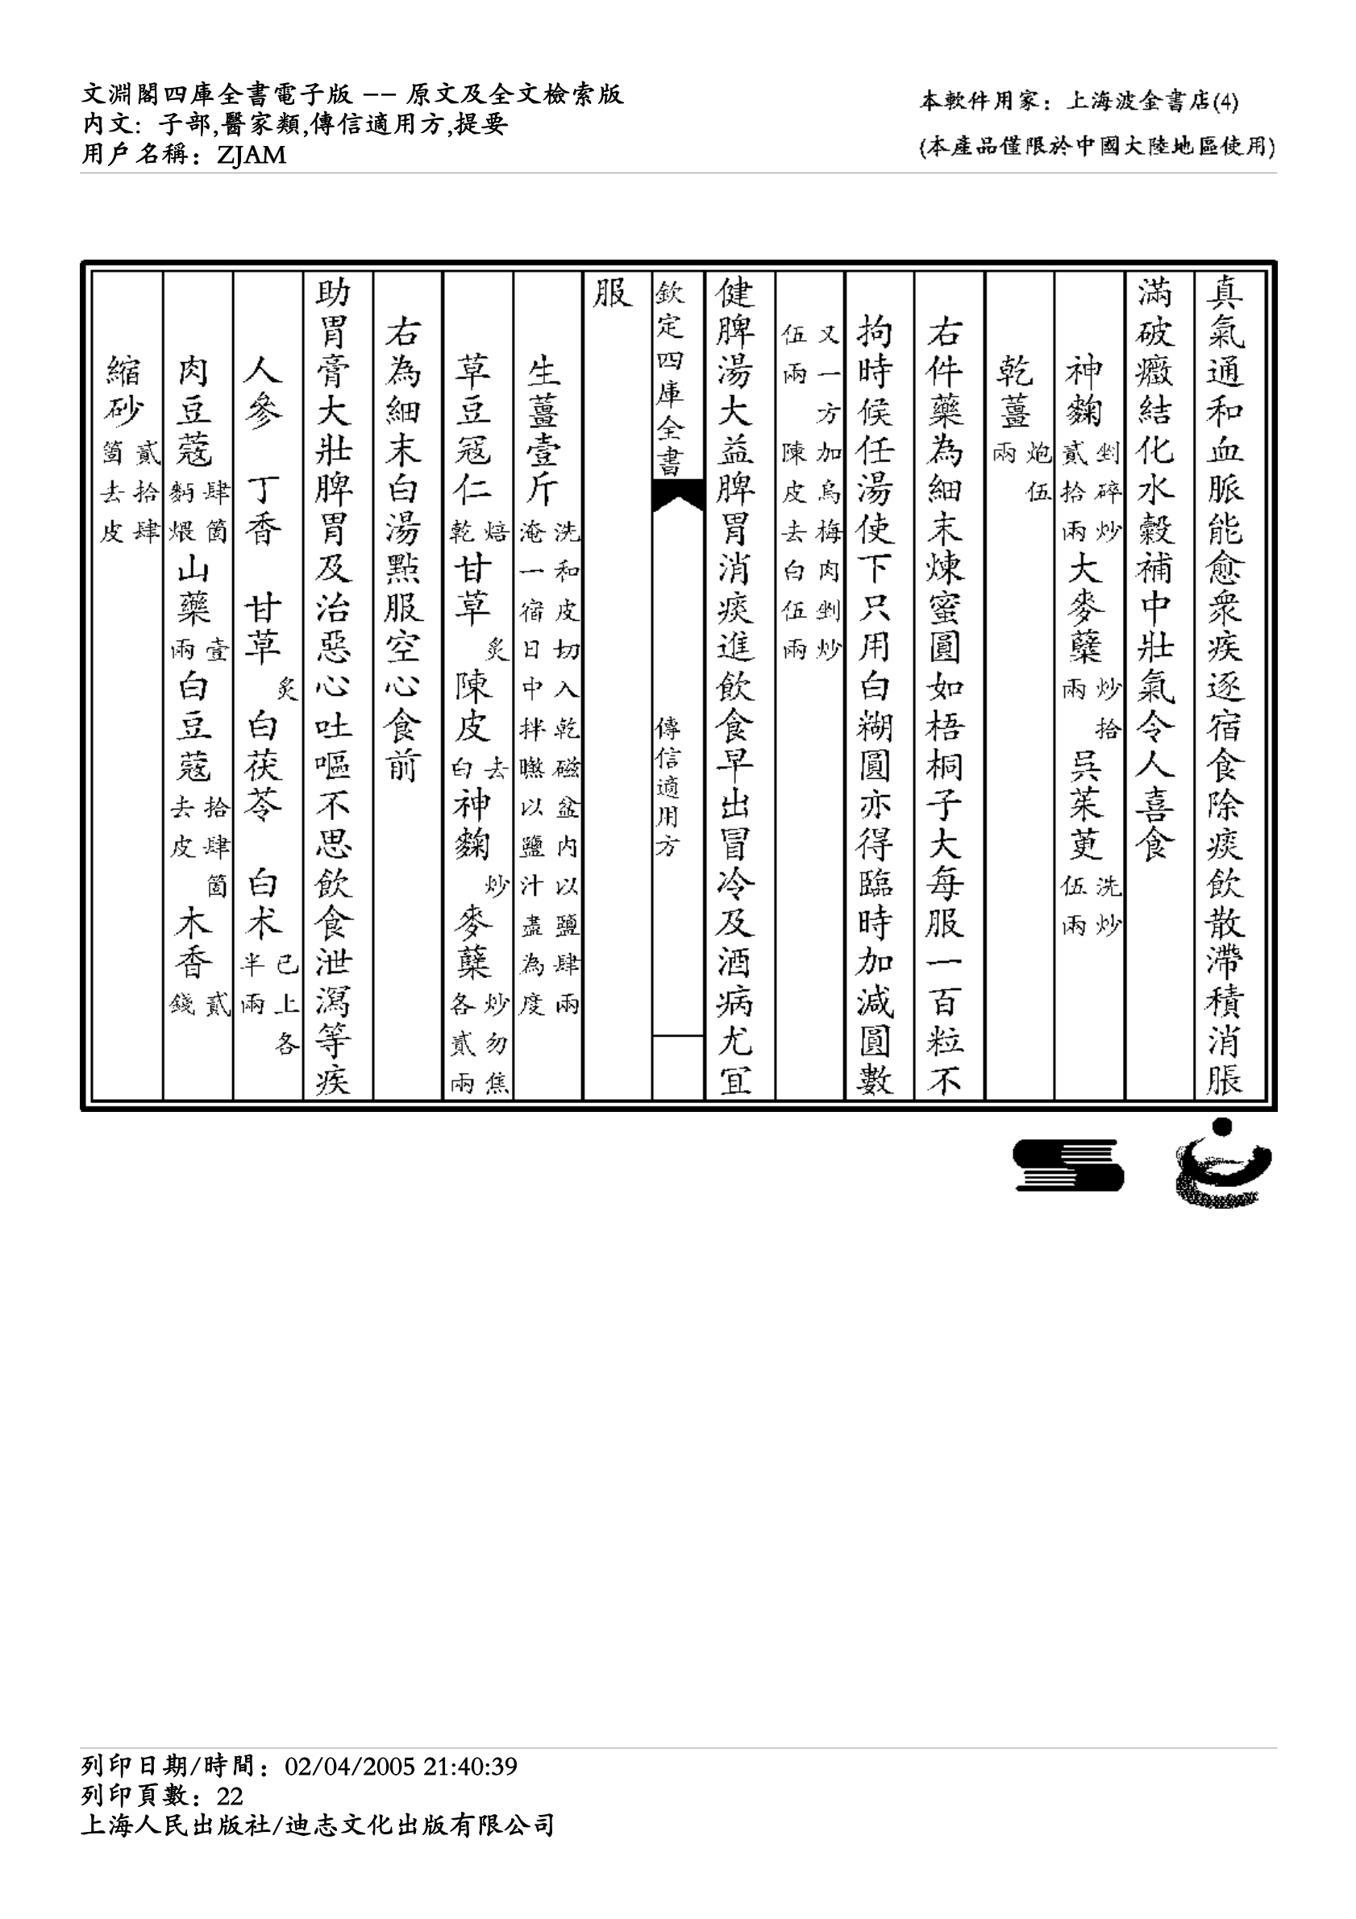 文淵閣四庫全書電子版 -- 原文及全文檢索版
內文: 子部,醫家類,傳信適用方,提要
用戶名稱: ZJAM
本軟件用家: 上海波金書店(4)
(本產品僅限於中國大陸地區使用)
真氣通和血脈能愈衆疾逐宿食除痰飲散滯積消脹
滿破癥結化水穀補中壯氣令人喜食
神麴剉碎炒貳拾兩大麥糵炒拾兩吳茱萸洗炒伍兩
乾薑炮伍兩
右件藥為細末煉蜜圓如梧桐子大每服一百粒不
拘時候任湯使下只用白糊圓亦得臨時加減圓數
又一方加烏梅肉剉炒伍兩陳皮去白伍兩
健脾湯大益脾胃消痰進飲食早出冒冷及酒病尤宜
欽定四庫全書 傳信適用方
服
生薑壹斤洗和皮切入乾磁盆內以鹽肆兩淹一宿日中拌㬠以鹽汁盡為度
草豆寇仁焙乾甘草炙陳皮去白神麴炒麥糵炒勿焦各貳兩
右為細末白湯點服空心食前
助胃膏大壯脾胃及治惡心吐嘔不思飲食泄瀉等疾
人參 丁香 甘草炙白茯苓 白术已上各半兩
肉豆蔻肆箇麪煨山藥壹兩白豆蔻拾肆箇去皮木香貳錢
縮砂貳拾肆箇去皮
列印日期/時間: 02/04/2005 21:40:39
列印頁數: 22
上海人民出版社/迪志文化出版有限公司